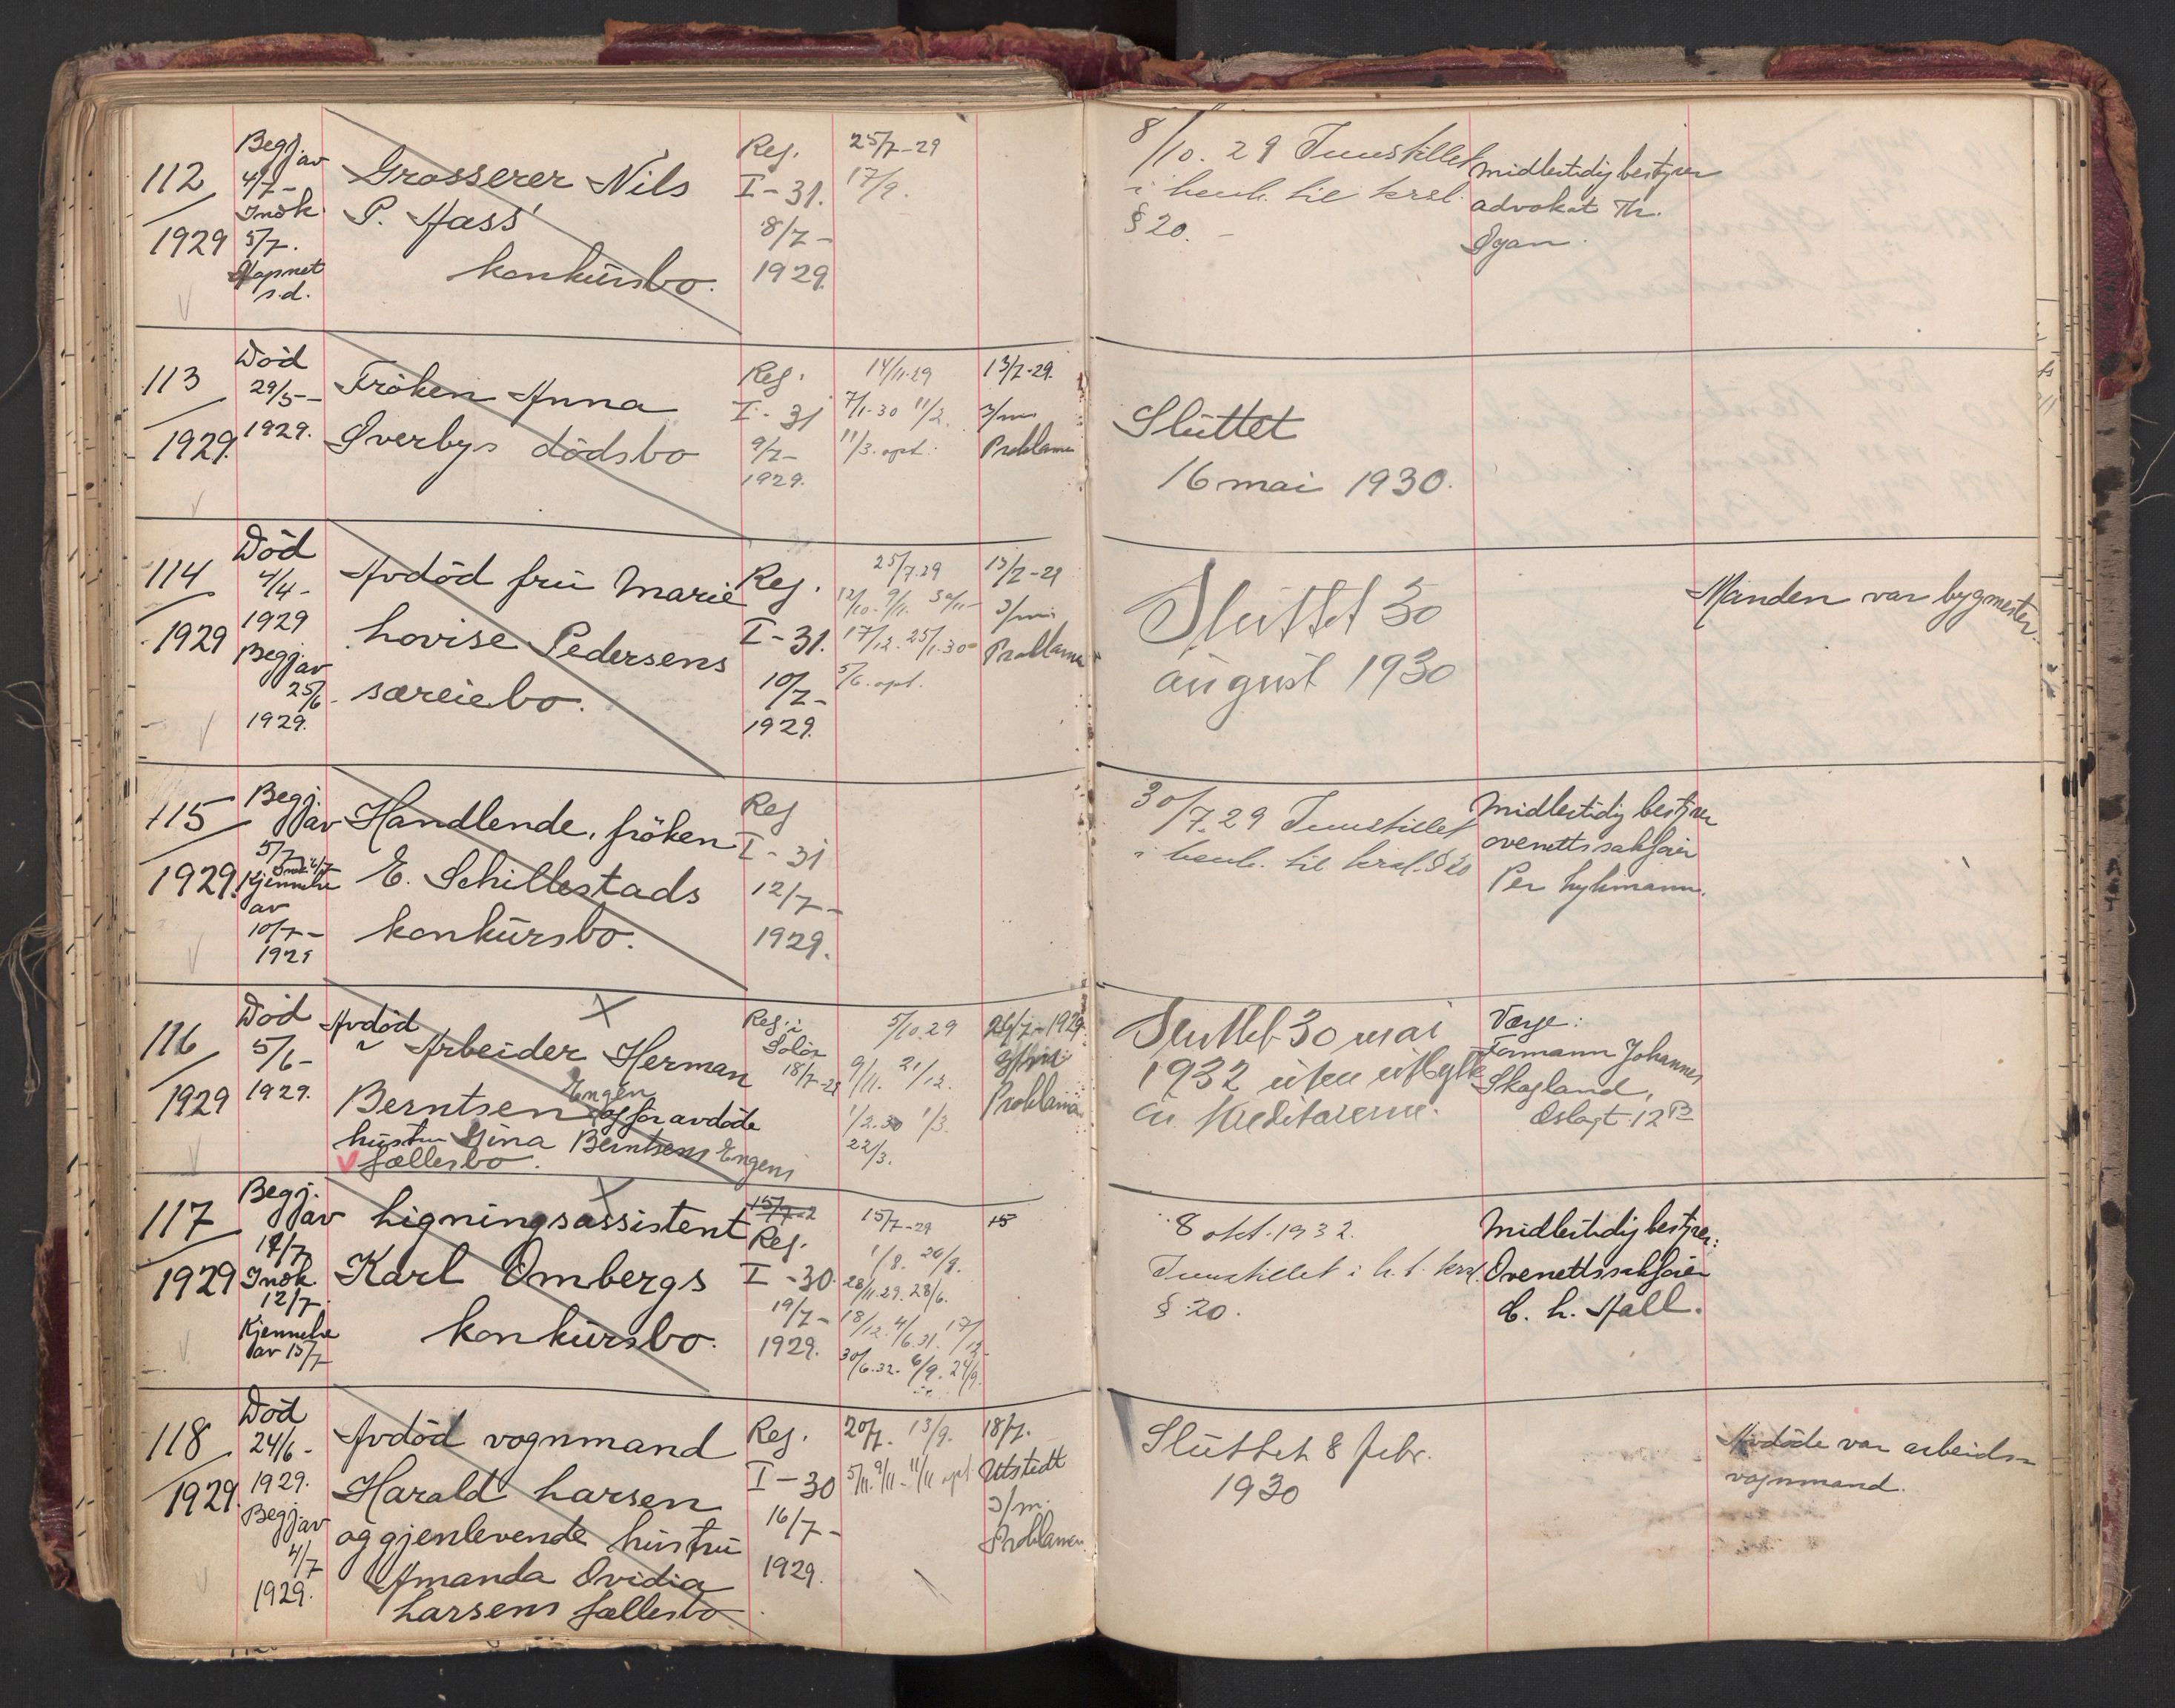 112
1929
Begj. av
4/7 -
Innk.
5/7.
Åapnet
s.d.
Grosserer Nils
P. Hass'
konkursbo.
Reg.
I - 31.
8/7 -
1929.
25/7-29
17/9.
8/10. 29 Innstillet
i henh. til krsl.
§ 20. -
Midlertidig bestyrer
advokat Th.
Øyan.
113
1929.
Död
29/5 -
1929.
Fröken Anna
Øverbys dödsbo
Reg.
I - 31
9/7 -
1929.
14/11-29
7/1-30 11/2.
11/3. opt.
13/7-29.
3/mrs
Proklama
Sluttet
16 mai 1930.
114
1929
Död
4/4 -
1929
Begj. av
25/6 -
1929.
Avdöd frü Marie
Lovise Pedersens
særeiebo.
Reg.
I - 31.
10/7 -
1929.
25/7.29
12/10. 9/11. 30/11 -
17/12. 25/1.30
5/6. opt.
13/7-29
3/mrs
Proklama
Sluttet 30
august 1930
Manden var bygmester.
115
1929.
Begj.
av
5/7
Innk. 6/7
Kjennelse
av
10/7 -
1929
Handlende, fröken
E. Schillestads
konkursbo.
Reg
I - 31
12/7 -
1929.
30/7.29 Innstillet
i henh. til krsl. § 20
Midlertidig bestyrer
overrettssakförer
Per Lykmann.
116
1929
Död
5/6 -
1929.
Avdöd
Arbeider Herman
Engen
Berntsen og for avdöde
hustru Gina Berntsens Engens
fællesbo.
Reg. i
Solör
18/7-29
5/10.29
9/11. 21/12.
1/2.30 1/3.
22/3.
26/7-1929.
3/mrs
Proklama
Sluttet 30 mai
1932 uten utbytte
til kreditorerne.
Verge:
Formann Johannes
Skogland,
Oslogt. 12 B
117
1929
Begj.
av
12/7
Innk.
12/7.
Kjennelse
av 15/7
Ligningsassistent
Karl Ombergs
konkursbo.
15/7-2
Reg.
I - 30.
19/7 -
1929.
15/7-29
1/8. 20/9.
28/11.29. 28/6.
18/12. 4/6.31. 17/12-
30/6.32. 6/9. 24/9.
15
8 okt. 1932.
Innstillet i h. t. krsl.
§ 20.
Midlertidig bestyrer:
Overrettssakförer
C. L. Hall.
118
1929.
Död
24/6 -
1929.
Begj. av
4/7
1929.
Avdöd vognmand
Harald Larsen
og gjenlevende hustru
Amanda Ovidia
Larsens fællesbo
Reg.
I - 30
16/7 -
1929.
20/7. 13/9.
5/11. 9/11 - 11/11 opt
18/7.
Utstedt
3/m.
Proklama
Sluttet 8 febr.
1930
Avdöde var arbeids-
vognmand.